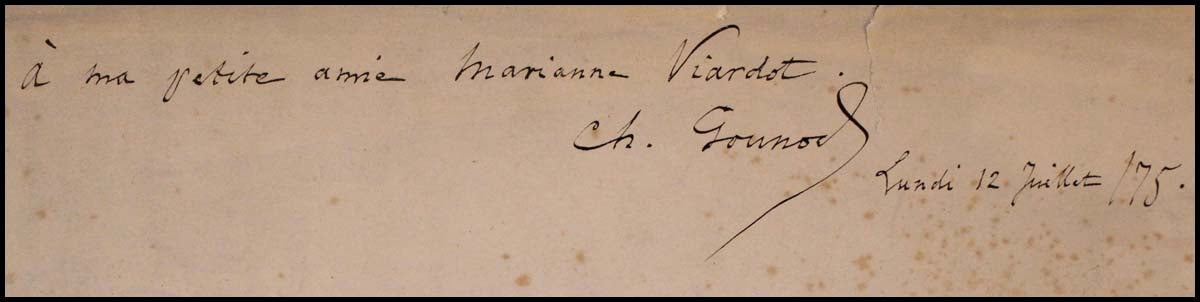 à ma petite amie Marianne Viardot.
Ch. Gounod
Lundi 12 Juillet /75.